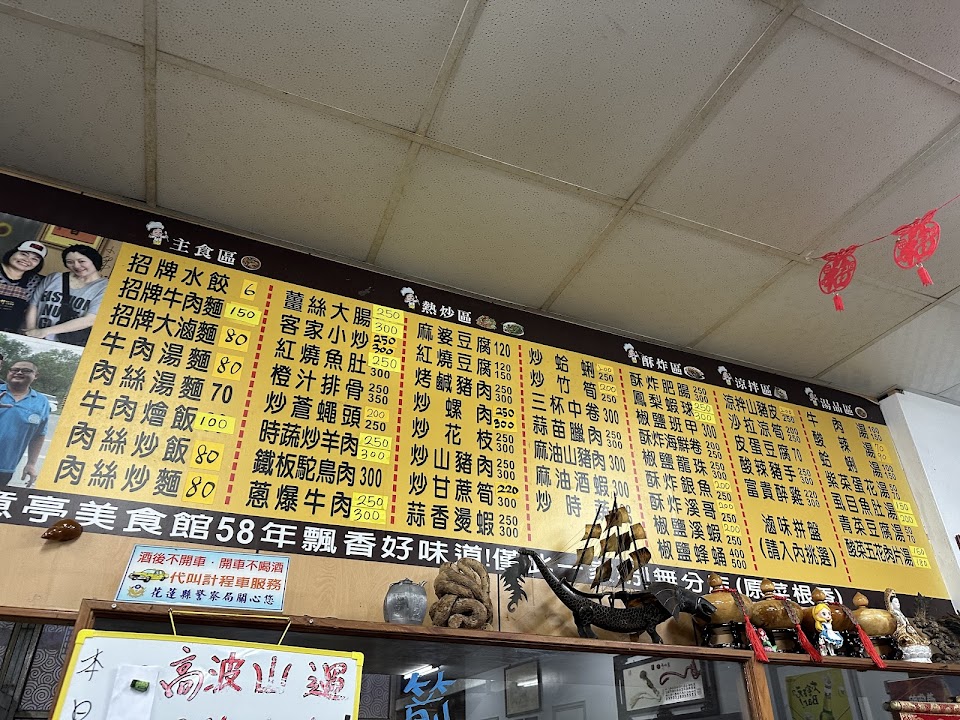 主食區
招牌水餃 6
招牌牛肉麵 150
招牌大滷麵 80
牛肉湯麵 80
肉絲湯麵 70
牛肉燴飯 100
肉絲炒飯 80
肉絲炒麵 80
熱炒區
薑絲大腸 250 300
客家小炒 250 300
紅燒魚肚 250 300
橙汁排骨 250 350
炒蒼蠅頭 200 250
時蔬炒羊肉 250 300
鐵板鴕鳥肉 300
蔥爆牛肉 250 300
麻婆豆腐 120
紅燒豆腐 120 150
烤鹹豬肉 250 300
炒螺肉 250 300
炒花枝 250 300
炒山豬肉 250 300
炒甘蔗筍 220
蒜香燙蝦 250
炒蛤蜊
炒竹筍 200 250
三杯中卷 300
蒜苗臘肉 250 300
麻油山豬肉 300
麻油酒蝦 300
炒時
酥炸區
酥炸肥腸 250 300
鳳梨蝦球 250
椒鹽班甲 300
酥炸海鮮卷 200
椒鹽龍珠 250 300
酥炸銀魚 250
酥炸溪哥 250
椒鹽溪蝦 200
椒鹽蜂蛹 400 500
涼拌區
涼拌山豬皮
沙拉涼筍 200 250
皮蛋豆腐 70
酸辣豬手 250 300
富貴醉雞 250
滷味拼盤
(請入內挑選)
湯品區
牛肉湯
酸辣湯
蛤蜊湯
紫菜蛋花湯
虱目魚肚湯
青菜豆腐湯
酸菜五花肉片湯
意亭美食館58年飄香好味道!僅
無分
酒後不開車．開車不喝酒
代叫計程車服務
花蓮縣警察局關心您
本日
高波山
FASHION